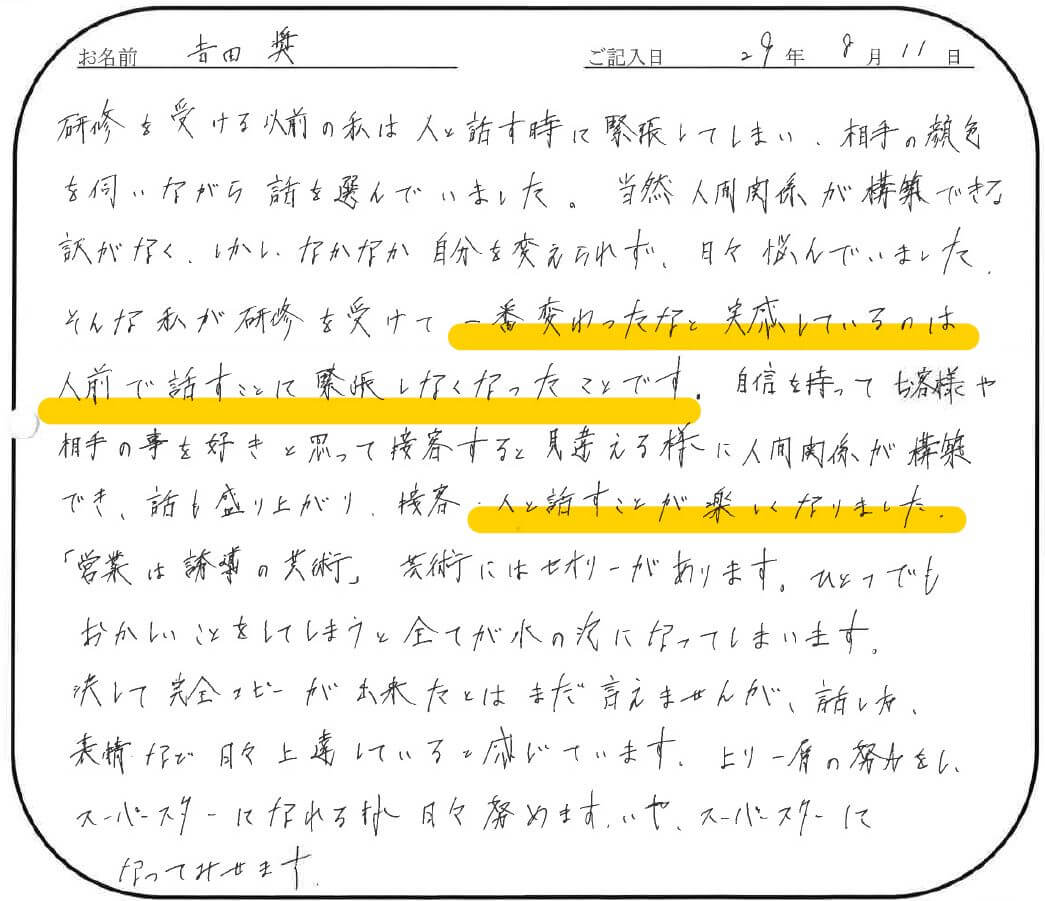 お名前 吉田 奨 ご記入日 29年 8月 11日
研修を受ける以前の私は人と話す時に緊張してしまい、相手の顔色
を伺いながら話を選んでいました。当然人間関係が構築できる
訳がなく、しかしなかなか自分を変えられず、日々悩んでいました。
そんな私が研修を受けて一番変わったなと実感しているのは
人前で話すことに緊張しなくなったことです。自信を持ってお客様や
相手の事を好きと思って接客すると見違える様に人間関係が構築
でき、話も盛り上がり、接客・人と話すことが楽しくなりました。
「営業は誘導の芸術」 芸術にはセオリーがあります。ひとつでも
おかしいことをしてしまうと全てが水の泡になってしまいます。
決して完全コピーが出来たとはまだ言えませんが、話し方、
表情など日々上達していると感じています。より一層の努力をし、
スーパースターになれる様日々努めます。いや、スーパースターに
なってみせます。